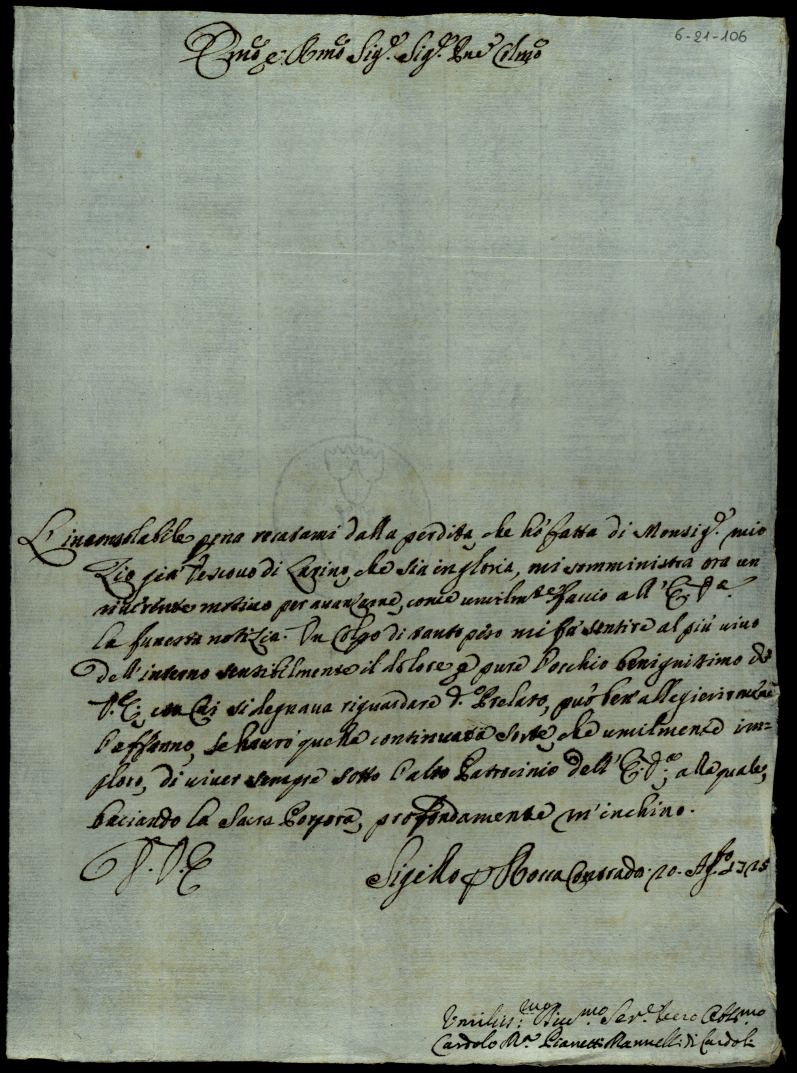 6-21-106
Emo, e Rmo Sig.r Sig.r Pne Colmo
L'inconsolabile pena recatami dalla perdita, che hò fatta di Monsig.r mio
Zio già Vescovo di Larino, che sia in gloria, mi somministra ora un
motivo per avanzarne, come umilm.te faccio all'E.V.a
la funesta notizia. Un Colpo di tanto peso mi fà sentire al più vivo
dell'interno sensibilmente il dolore, e pure l'occhio benignissimo di
V.E., con Cui si degnava riguardare d.o Prelato, può ben allegierirmene
l'affanno, se haurò quella continuata sorte, che umilmente im=
ploro, di viver sempre sotto l'alto Patrocinio dell'E.V.a, alla quale,
baciando la Sacra Porpora, profondamente m'inchino.
D. V. E.
Sigillo p Rocca Contrada 20. Ag.to 1725
Umiliss.mo Devmo Ser.e vero Obblmo
Cardolo M.a Pianetti Mannelli di Cardoli